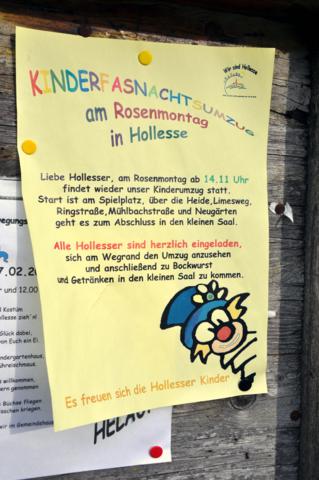 Wir sind Hollesse
KINDERFASNACHTSUMZUG
am Rosenmontag
in Hollesse
Liebe Hollesser, am Rosenmontag ab 14.11 Uhr
findet wieder unser Kinderumzug statt.
Start ist am Spielplatz, über die Heide,Limesweg,
Ringstraße,Mühlbachstraße und Neugärten
geht es zum Abschluss in den kleinen Saal.
Alle Hollesser sind herzlich eingeladen,
sich am Wegrand den Umzug anzusehen
und anschließend zu Bockwurst
und Getränken in den kleinen Saal zu kommen.
Es freuen sich die Hollesser Kinder
7.02.2
r und 12.00
Kostüm
Glück dabei,
on Euch ein Ei.
willkommen,
ern genommen
Büchse fliegen
aschen kriegen.
im Gemeindehaus
HELAU